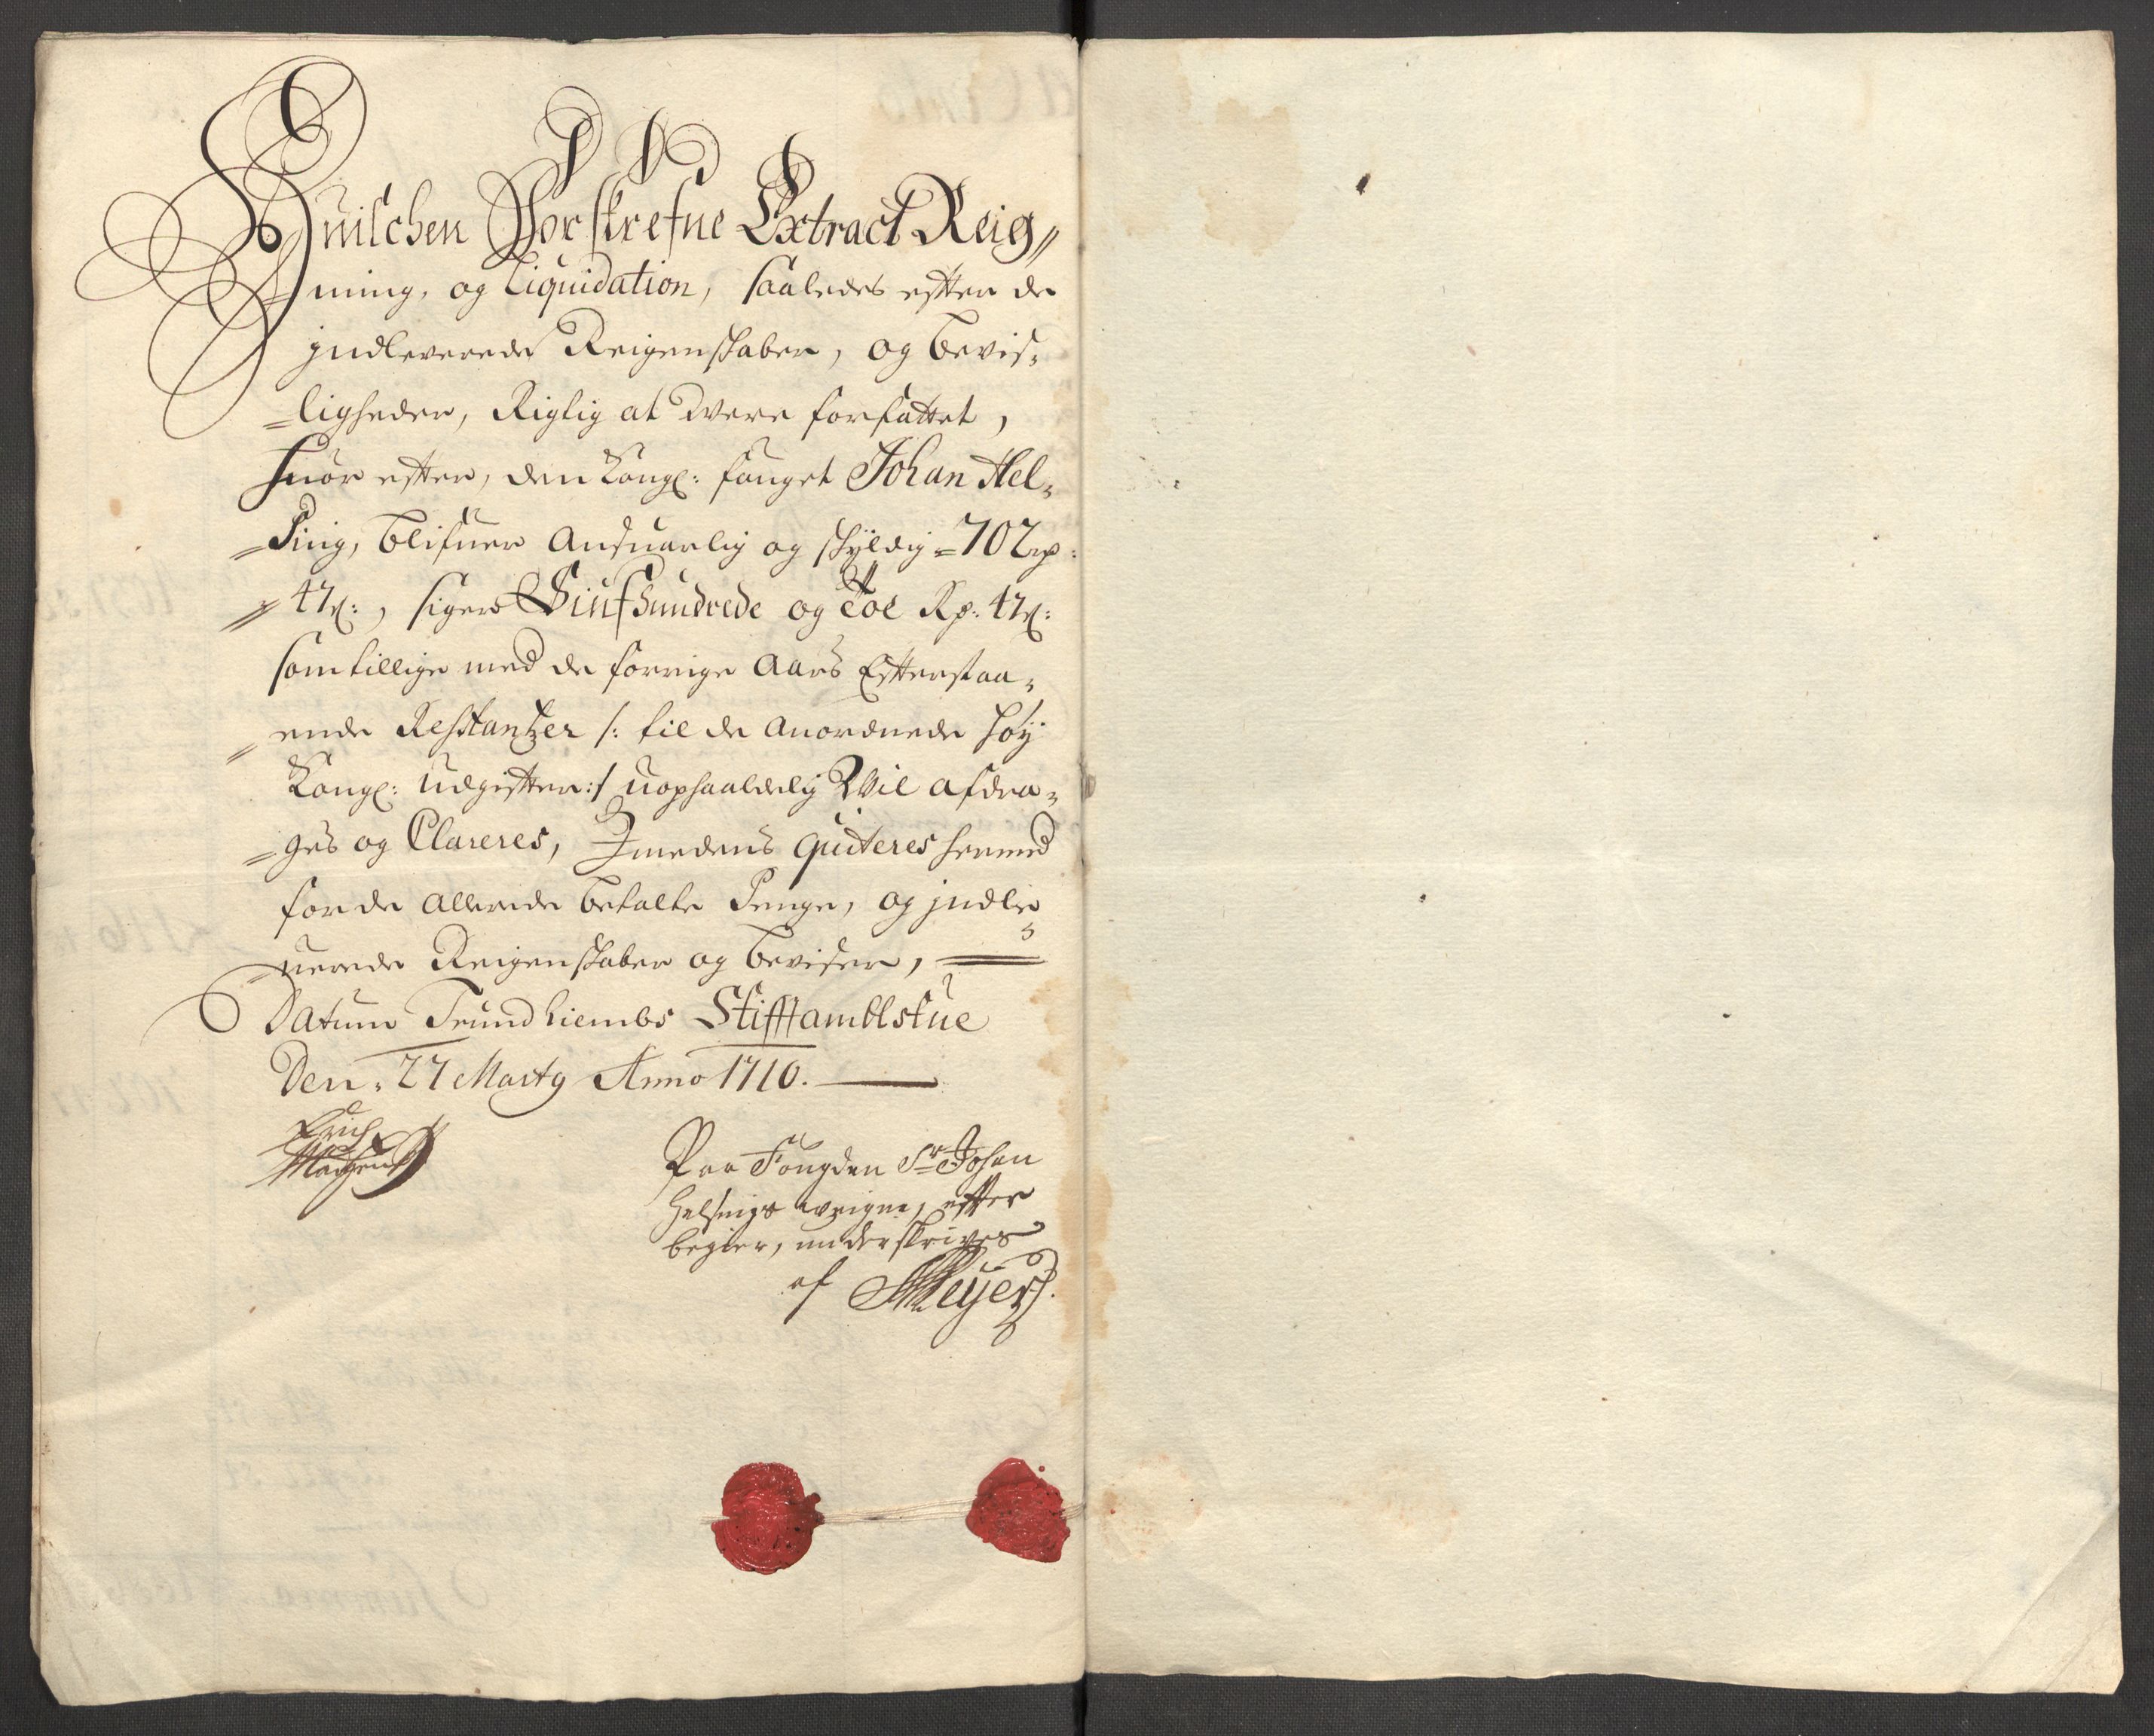 Huilchen Forskrefne Extract Reig„
„ning, og Liquidation, saaledes efter de
jndleverede Reigenskaber, og Bevis„
„ligheder, Rigtig at være forfattet,
huor efter, den Kongl: fouget Johan Hel„
„sing, blifuer Ansuarlig og schyldig „702 rd:
„ 47 s:, siger Siufhundrede og Toe Rd: 47 s:
som tillige med de forrige Aars Efterstaa„
„ende Restantzer /: til de Anordnede høy
Kongl: udgifter :/ uophaaldelig Vil afdra„
„ges og Clareres, Jmedens quiteres hermed
for de Allerede betalte Penge, og jndle„
„verede Reigenskaber og beviser,
Datum Trundhiembs Stifftambtstue
Den „27 Marty Anno 1710.
Erich
Paa Fougden Sr Johan
Helsings veigne, efter
begier, underskrives
af Meyer